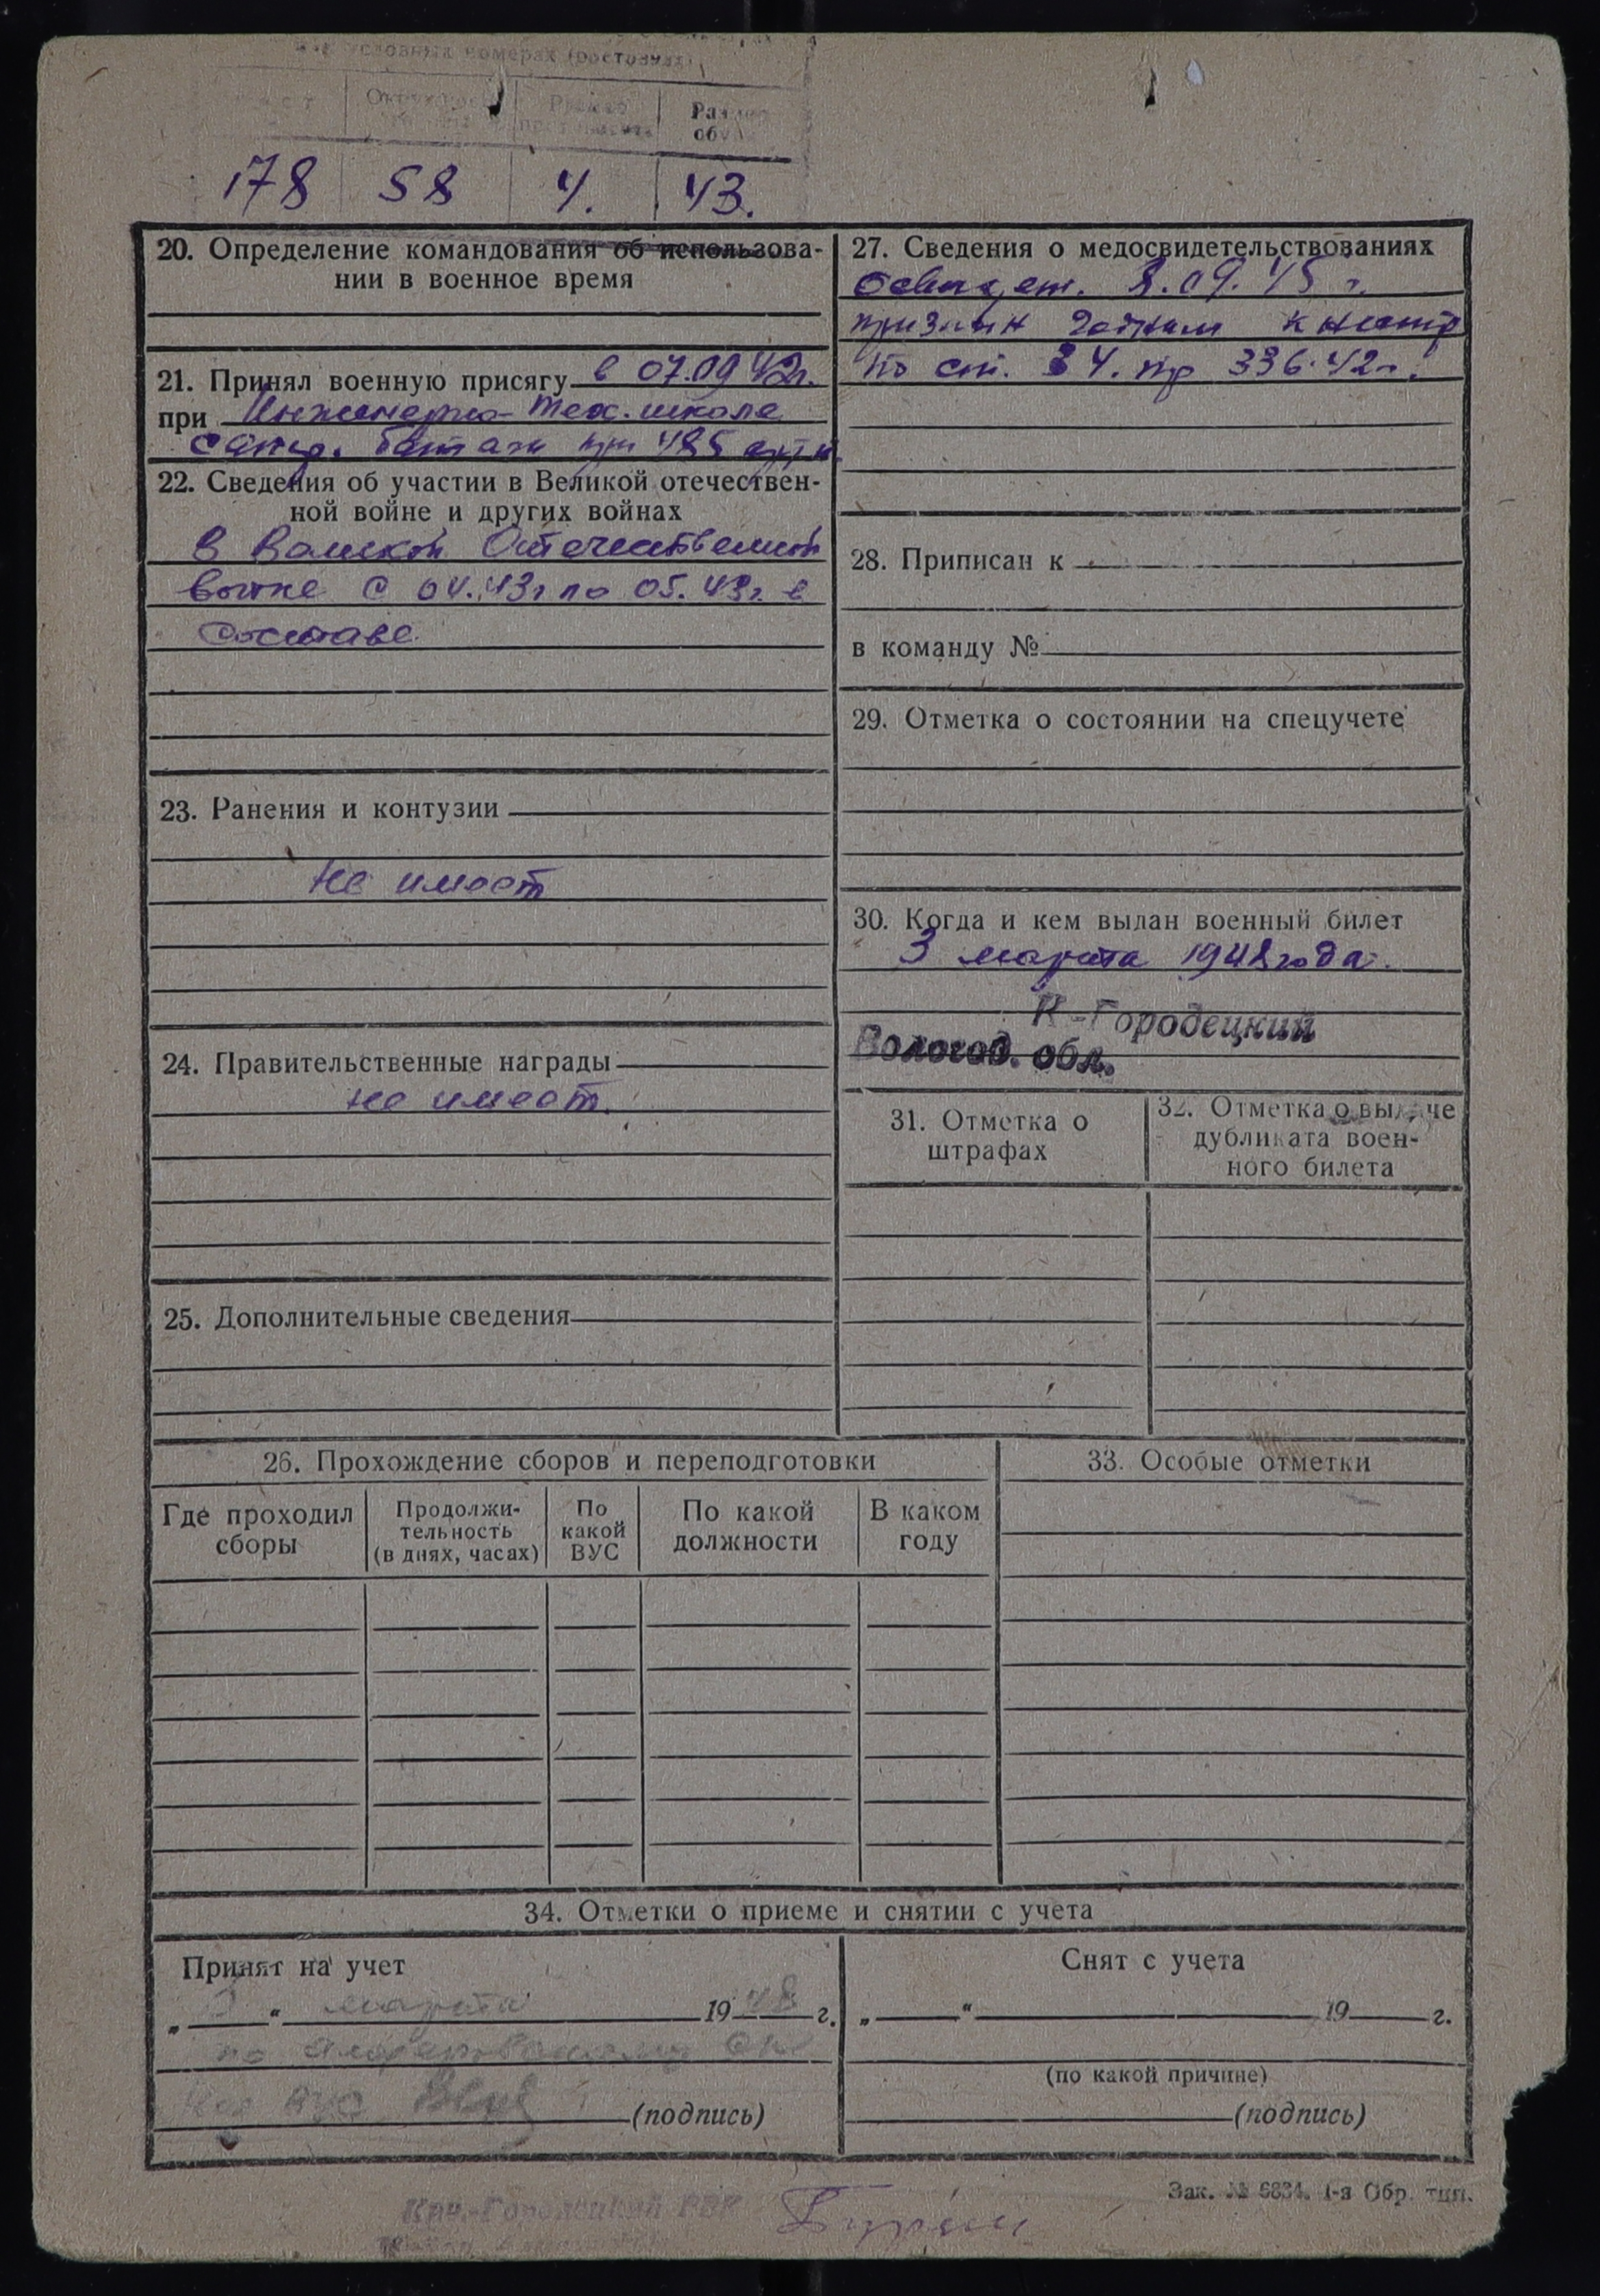 условных номерах (ростовка)
Размер
обуви
178 58 4. 43.
20. Определение командования об использова-
нии в военное время
21. Принял военную присягу в 07.09 42г.
при Инженерно-тех. школе
при 485
22. Сведения об участии в Великой отечествен-
ной войне и других войнах
в Великой Отечественной
войне с 04.43г по 05.43г. в
составе
23. Ранения и контузии
Не имеет
24. Правительственные награды
не имеет.
25. Дополнительные сведения
27. Сведения о медосвидетельствованиях
8.09.45 г.
признан годным к
по ст. 34. пр 336.42г.
28. Приписан к
в команду №
29. Отметка о состоянии на спецучете
30. Когда и кем выдан военный билет
3 марта 1948 года.
К-Городецкий
Вологод. обл.
31. Отметка о
штрафах
32. Отметка о выдаче
дубликата воен-
ного билета
26. Прохождение сборов и переподготовки
Где проходил
сборы
Продолжи-
тельность
(в днях, часах)
По
какой
ВУС
По какой
должности
В каком
году
33. Особые отметки
34. Отметки о приеме и снятии с учета
Принят на учет
„ 3 “ марта 1948 г.
по
(подпись)
Снят с учета
„ “ 19 г.
(по какой причине)
(подпись)
Зак. № 6834. 1-я Обр. тип.
Кич.-Городецкий РВК